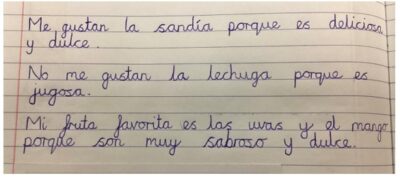 Me gustan la sandía porque es deliciosa
y dulce.
No me gustan la lechuga porque es
jugosa.
Mi fruta favorita es las uvas y el mango
porque son muy sabroso y dulce.